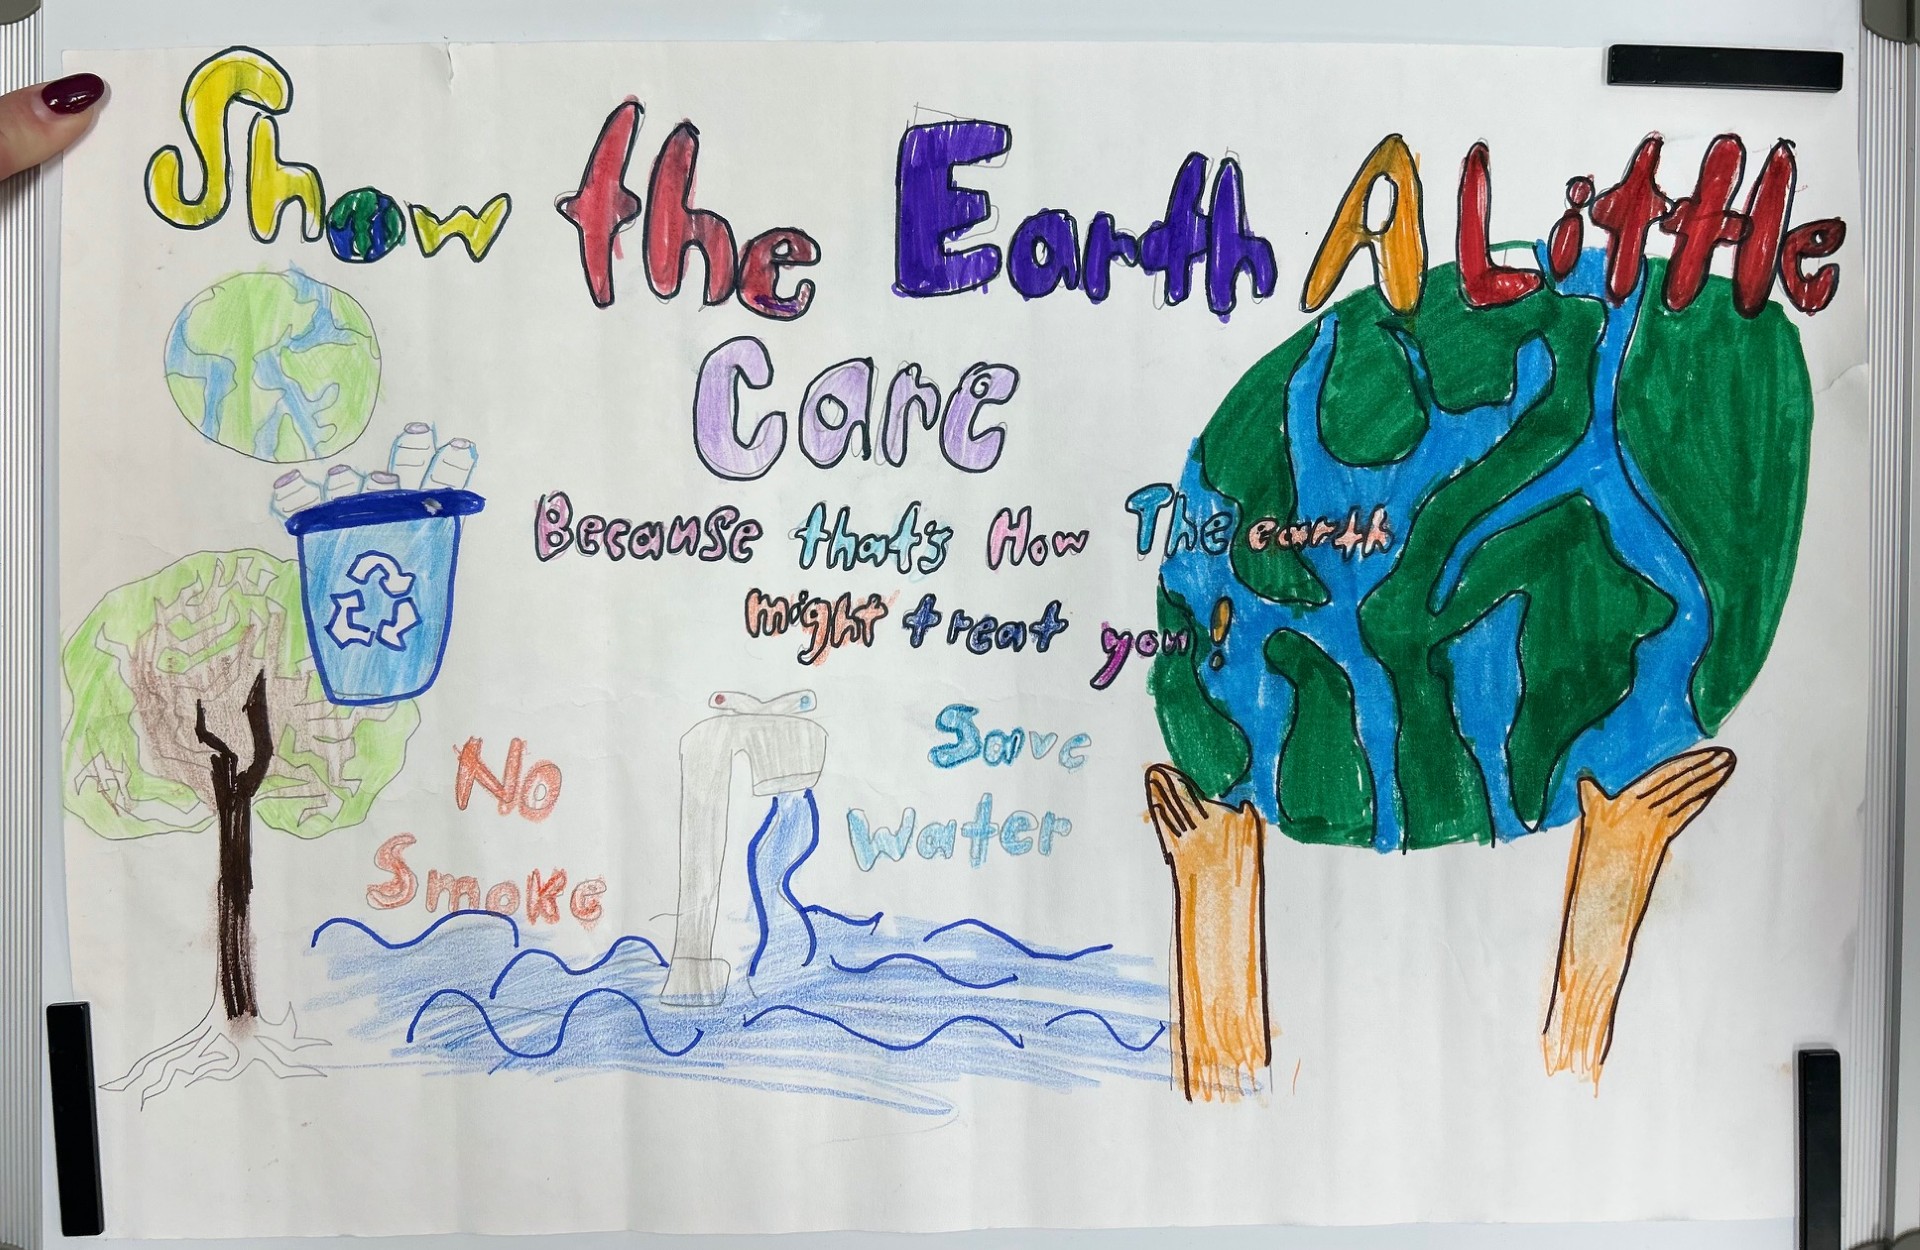 Show the Earth A Little
Care
Because that's How The earth
might treat you!
No
Smoke
Save
Water